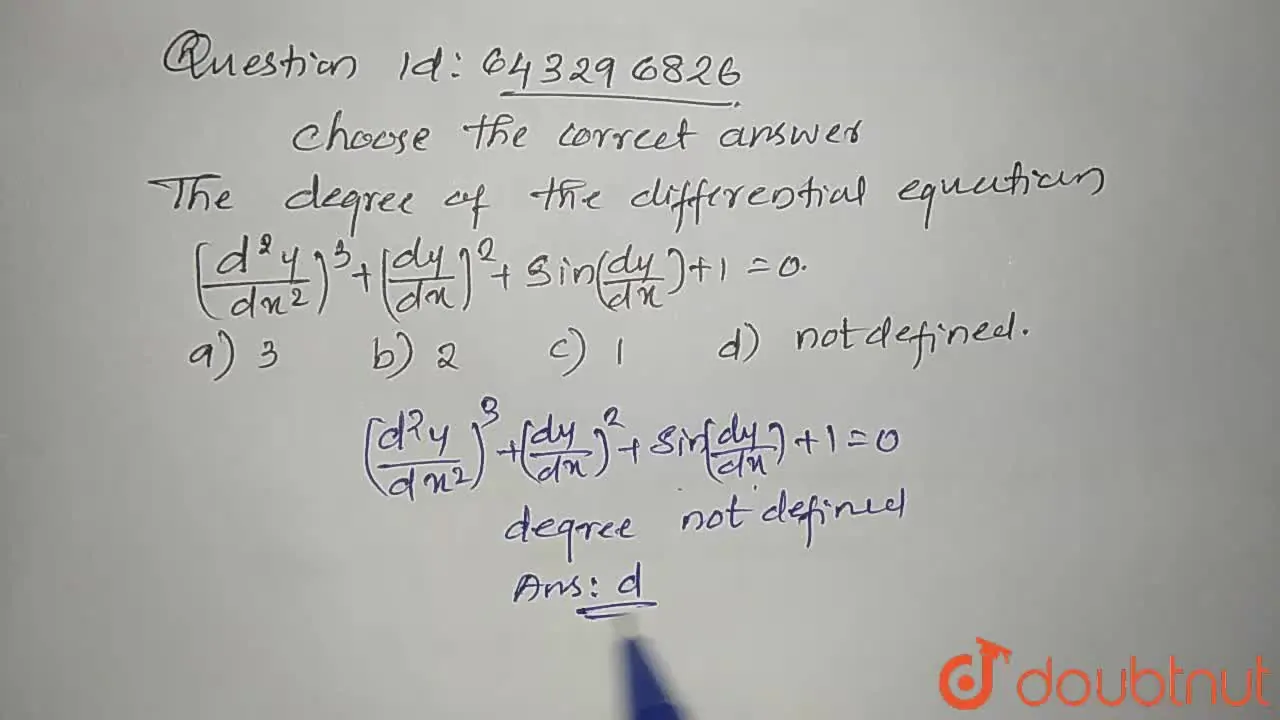 Question Id: 643296826
choose the correct answer
The degree of the differential equation
(d²y/dx²)³+(dy/dx)²+ Sin(dy/dx)+1=0.
a) 3 b) 2 c) 1 d) not defined.
(d²y/dx²)³+(dy/dx)²+ Sin(dy/dx)+1=0
degree not defined
Ans: d
doubtnut